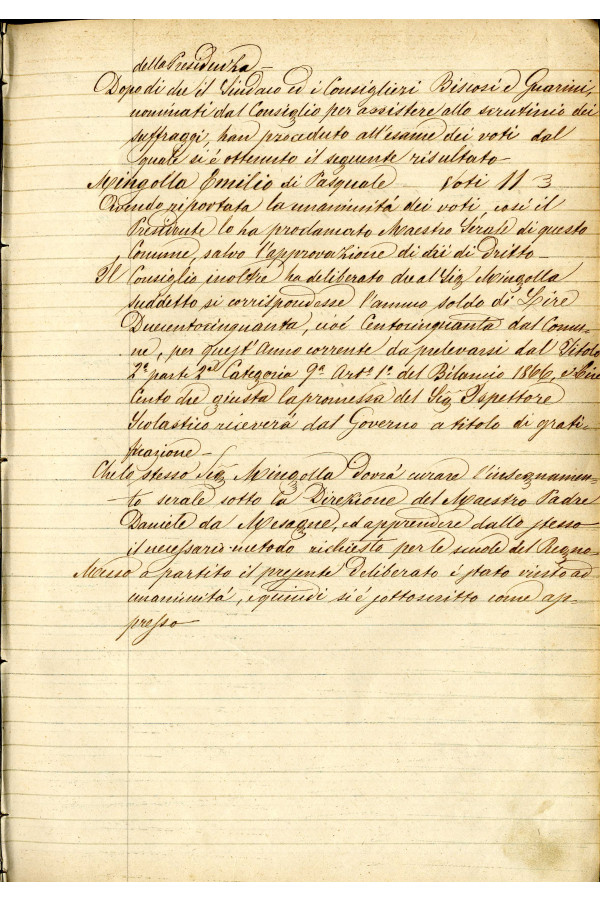 della Presidenza —
Dopodi che il Sindaco ed i Consiglieri Biscosi e Guarini,
nominati dal Consiglio per assistere allo scrutinio dei
suffraggi, han proceduto all'esame dei voti dal
quale si è ottenuto il seguente risultato —
Mingolla Emilio di Pasquale Voti 11
Avendo riportata la unanimità dei voti, così il
Presidente lo ha proclamato Maestro Serale di questo
Comune, salvo l'approvazione di chi di dritto —
Il Consiglio inoltre ha deliberato che al Sig Mingolla
suddetto si corrispondesse l'annuo soldo di Lire
Duecentocinquanta, cioè Centocinquanta dal Comu-
ne, per quest'Anno corrente da prelevarsi dal Titolo
2° parte 2ª Categoria 9ª Artº 1° del Bilancio 1866, e Lire
Cento che giusta la promessa del Sig Ispettore
Scolastico riceverà dal Governo a titolo di grati-
ficazione —
Che lo stesso Sig Mingolla dovrà curare l'insegnamen-
to serale sotto la Direzione del Maestro Padre
Daniele da Mesagne, ed apprendere dallo stesso
il necessario metodo richiesto per le scuole del Regno —
Messo a partito il presente Deliberato è stato vinto ad
unanimità, e quindi si è sottoscritto come ap-
presso